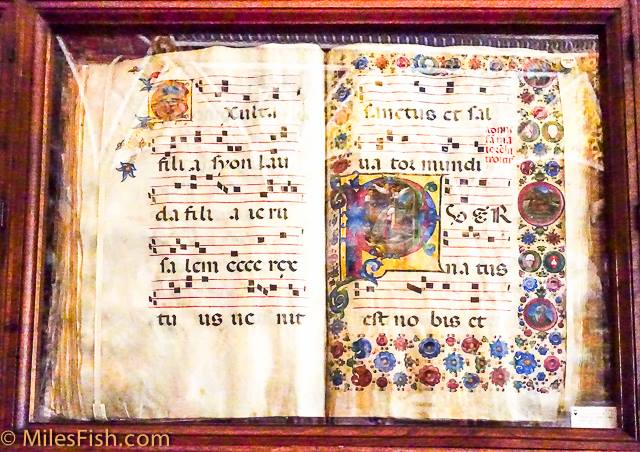 xulta
fili a syon lau
da fili a ie ru
sa lem ecce rex
tu us ue nit
sanctus et sal
ua tor mundi
P VER
na tus
est no bis et
© MilesFish.com